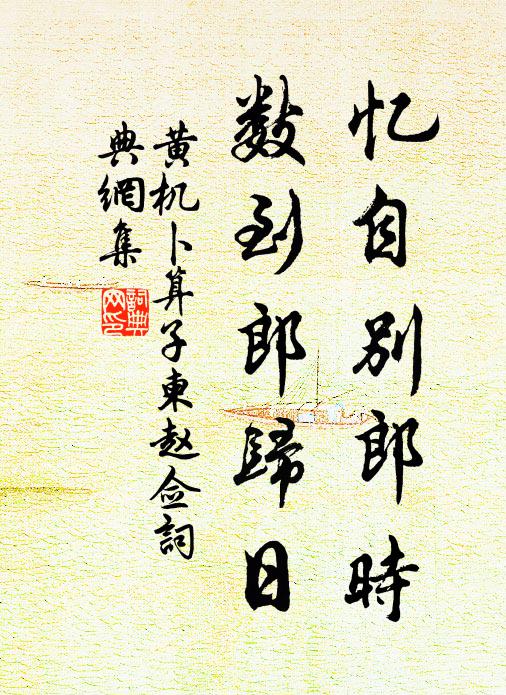 忆自别郎時
数到郎歸日
黄机卜算子東赵佥詞
典網集
詞典網印